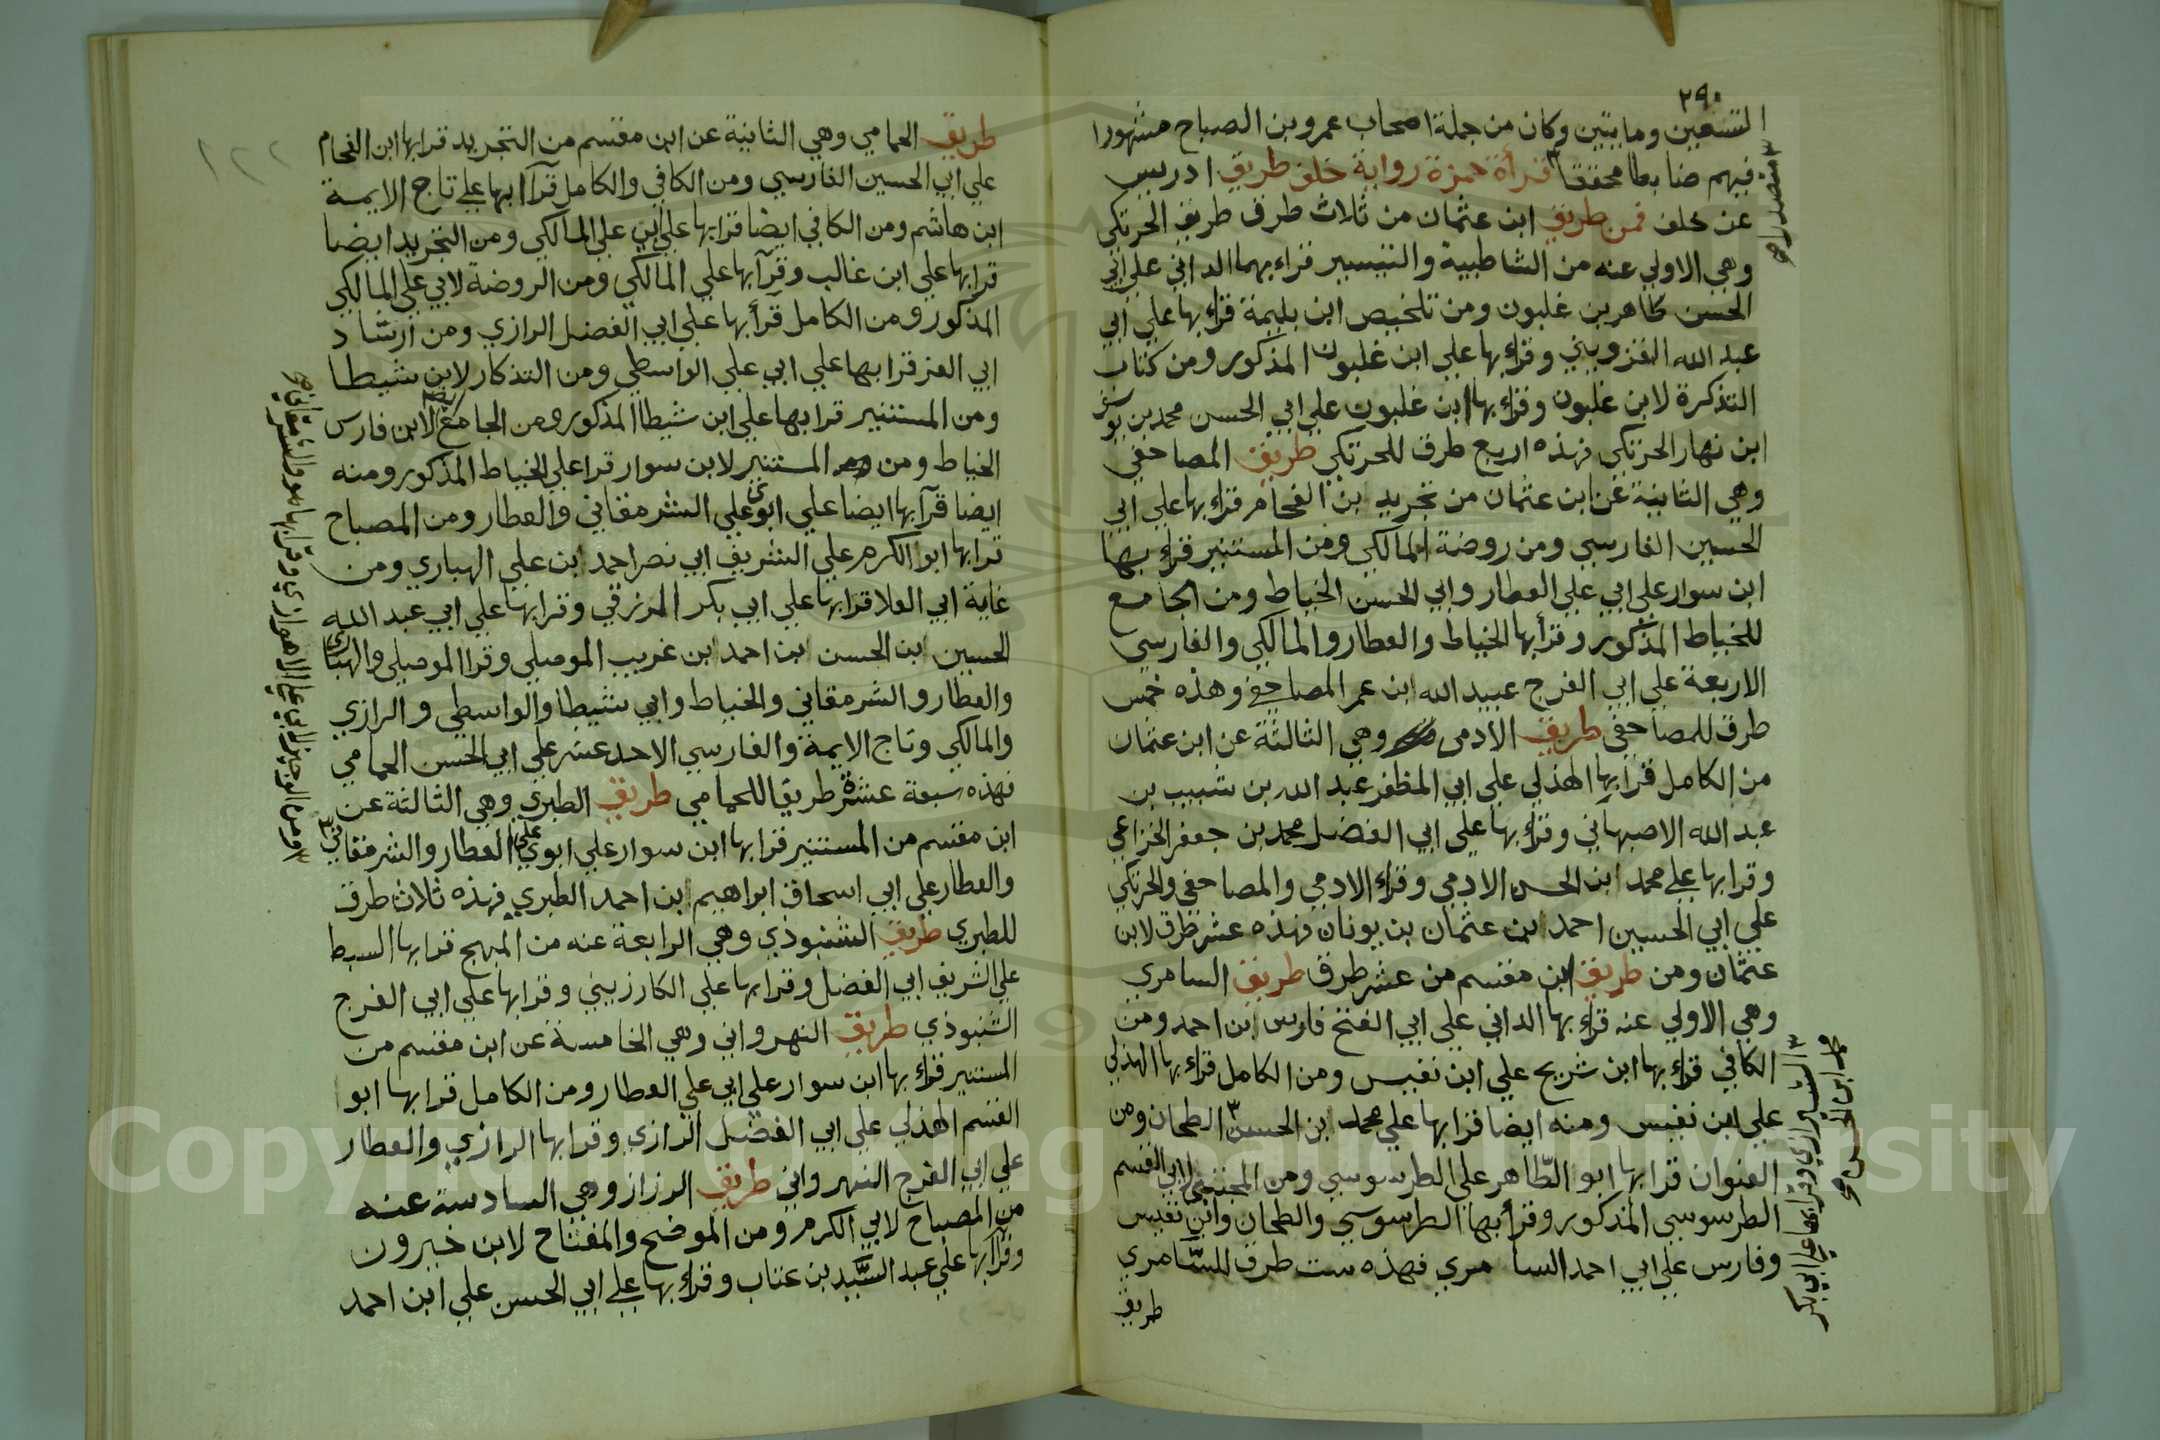 ٢٩٠
التسعين ومايتين وكان من جملة اصحاب عمرو بن الصباح مشهورا
فيهم ضابطا محققا قرأة حمزة رواية خلف طريق ادريس
عن خلف فمن طريق ابن عثمان من ثلاث طرق طريق الحرتكي
وهي الاولي عنه من الشاطبية والتيسير قراء بهما الداني علي ابي
الحسن طاهر بن غلبون ومن تلخيص ابن بليمة قراء بها علي ابي
عبد الله القزويني وقراء بها علي ابن غلبون المذكور ومن كتاب
التذكرة لابن غلبون وقراء بها ابن غلبون علي ابي الحسن محمد بن يوسف
ابن نهار الحرتكي فهذه اربع طرق للحرتكي طريق المصاحفي
وهي الثانية عن ابن عثمان من تجريد بن الفحام قراء بها علي ابي
الحسين الفارسي ومن روضة المالكي ومن المستنير قراء بها
ابن سوار علي ابي علي العطار وابي الحسن الخياط ومن الجامع
للخياط المذكور وقرأ بها الخياط والعطار والمالكي والفارسي
الاربعة علي ابي الفرج عبيد الله ابن عمر المصاحفي وهذه خمس
طرق للمصاحفي طريق الادمي وهي الثالثة عن ابن عثمان
من الكامل قرا بها الهذلي علي ابي المظفر عبد الله بن شبيب بن
عبد الله الاصبهاني وقراء بها علي ابي الفضل محمد بن جعفر الخزاعي
وقرا بها علي محمد ابن الحسن الادمي وقراء الادمي والمصاحفي والحرتكي
علي ابي الحسين احمد ابن عثمان بن بويان فهذه عشر طرق لابن
عثمان ومن طريق ابن مقسم من عشر طرق طريق السامري
وهي الاولي عنه قراء بها الداني علي ابي الفتح فارس ابن احمد ومن
الكافي قراء بها ابن شريح علي ابن نفيس ومن الكامل قراء بها الهذلي
علي ابن نفيس ومنه ايضا قرا بها علي محمد ابن الحسن الطحان ومن
العنوان قرا بها ابو الطاهر علي الطرسوسي ومن المجتبي لابي القسم
الطرسوسي المذكور وقرأ بها الطرسوسي والطحان وابن نفيس
وفارس علي ابي احمد السامري فهذه ست طرق للسامري
طريق
الشيرازي وقرا بها علي ابي بكر
محمد ابن الحسن صح
طريق الحمامي وهي الثانية عن ابن مقسم من التجريد قرا بها ابن الفحام
علي ابي الحسين الفارسي ومن الكافي والكامل قرآ بها علي تاج الايمة
ابن هاشم ومن الكافي ايضا قرا بها علي ابي علي المالكي ومن التجريد ايضا
قرا بها علي ابن غالب وقرآ بها علي المالكي ومن الروضة لابي علي المالكي
المذكور ومن الكامل قرأ بها علي ابي الفضل الرازي ومن ارشاد
ابي العز قرا بها علي ابي علي الواسطي ومن التذكار لابن شيطا
ومن المستنير قرا بها علي ابن شيطا المذكور ومن الجامع لابن فارس
الخياط ومن المستنير لابن سوار قرا علي الخياط المذكور ومنه
ايضا قرآ بها ايضا علي ابوي علي الشرمقاني والعطار ومن المصباح
قرا بها ابو الكرم علي الشريف ابي نصر احمد ابن علي الهباري ومن
غاية ابي العلا قرا بها علي ابي بكر المزرقي وقرا بها علي ابي عبد الله
الحسين ابن الحسن ابن احمد ابن غريب الموصلي وقرا الموصلي والهباري
والعطار والشرمقاني والخياط وابي شيطا والواسطي والرازي
والمالكي وتاج الايمة والفارسي الاحد عشر علي ابي الحسن الحمامي
فهذه سبعة عشرة طريقا للحمامي طريق الطبري وهي الثالثة عن
ابن مقسم من المستنير قرا بها ابن سوار علي ابوي علي العطار والشرمقاني
والعطار علي ابي اسحاق ابراهيم ابن احمد الطبري فهذه ثلاث طرق
للطبري طريق الشنبوذي وهي الرابعة عنه من المبهج قرا بها السبط
علي الشريف ابي الفضل وقرا بها علي الكارزيني وقرا بها علي ابي الفرج
الشنبوذي طريق النهرواني وهي الخامسة عن ابن مقسم من
المستنير قراء بها ابن سوار علي ابي علي العطار ومن الكامل قرا بها ابوا
القسم الهذلي علي ابي الفضل الرازي وقرا بها الرازي والعطار
علي ابي الفرج النهرواني طريق الرزاز وهي السادسة عنه
من المصباح لابي الكرم ومن الموضح والمفتاح لابن خيرون
وقرآ بها علي عبد السيد بن عتاب وقراء بها علي ابي الحسن علي ابن احمد
ومن الوجيز لابي علي الاهوازي وقرا بها
١٢٢
Copyright © King Saud University